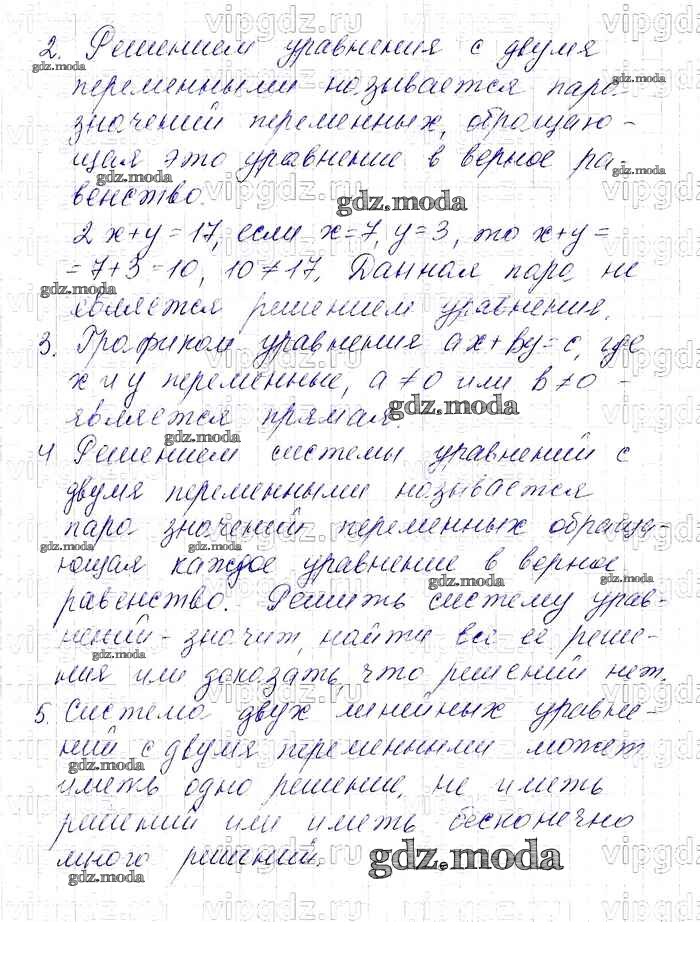 2. Решением уравнения с двумя
переменными называется пара
значений переменных, обращаю-
щая это уравнение в верное ра-
венство.
2 x+y=17, если x=7, y=3, то x+y=
=7+3=10, 10≠17. Данная пара не
является решением уравнения.
3. Графиком уравнения ax+by=c, где
x и y переменные, a≠0 или b≠0 -
является прямая.
4. Решением системы уравнений с
двумя переменными называется
пара значений переменных обраща-
ющая каждое уравнение в верное
равенство. Решить систему урав-
нений - значит, найти все её реше-
ния или доказать, что решений нет.
5. Система двух линейных уравне-
ний с двумя переменными может
иметь одно решение, не иметь
решений или иметь бесконечно
много решений.
gdz.moda
vipgdz.ru